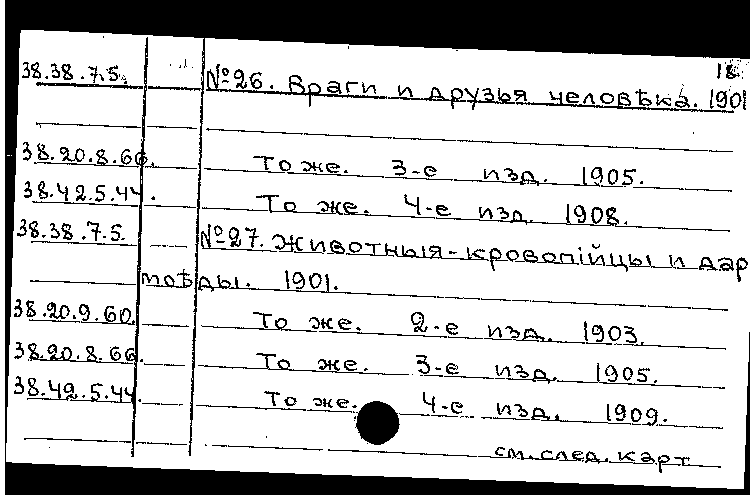 18
38.38.7.5. №26. Враги и друзья человѣка. 1901
38.20.8.66. То же. 3-е изд. 1905.
38.42.5.44. То же. 4-е изд. 1908.
38.38.7.5. №27. Животныя-кровопійцы и дар
моѣды. 1901.
38.20.9.60. То же. 2-е изд. 1903.
38.20.8.66. То же. 3-е изд. 1905.
38.42.5.44. То же. 4-е изд. 1909.
см. след. карт